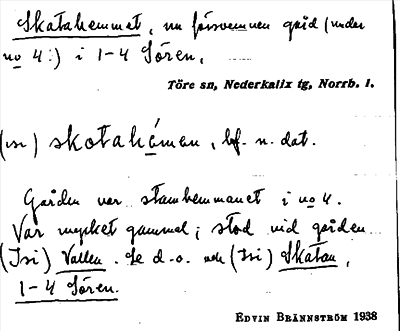 Skatahemmet, nu försvunnen gård (under
no 4:) i 1-4 Sören,
Töre sn, Nederkalix tg, Norrb. l.
(isi) skotahéman, bf. n. dat.
Gården var stamhemmanet i no 4.
Var mycket gammal; stod vid gården
(Isi) Vallen. Se d.o. och (Isi) Skatan,
1-4 Sören.
EDVIN BRÄNNSTRÖM 1938